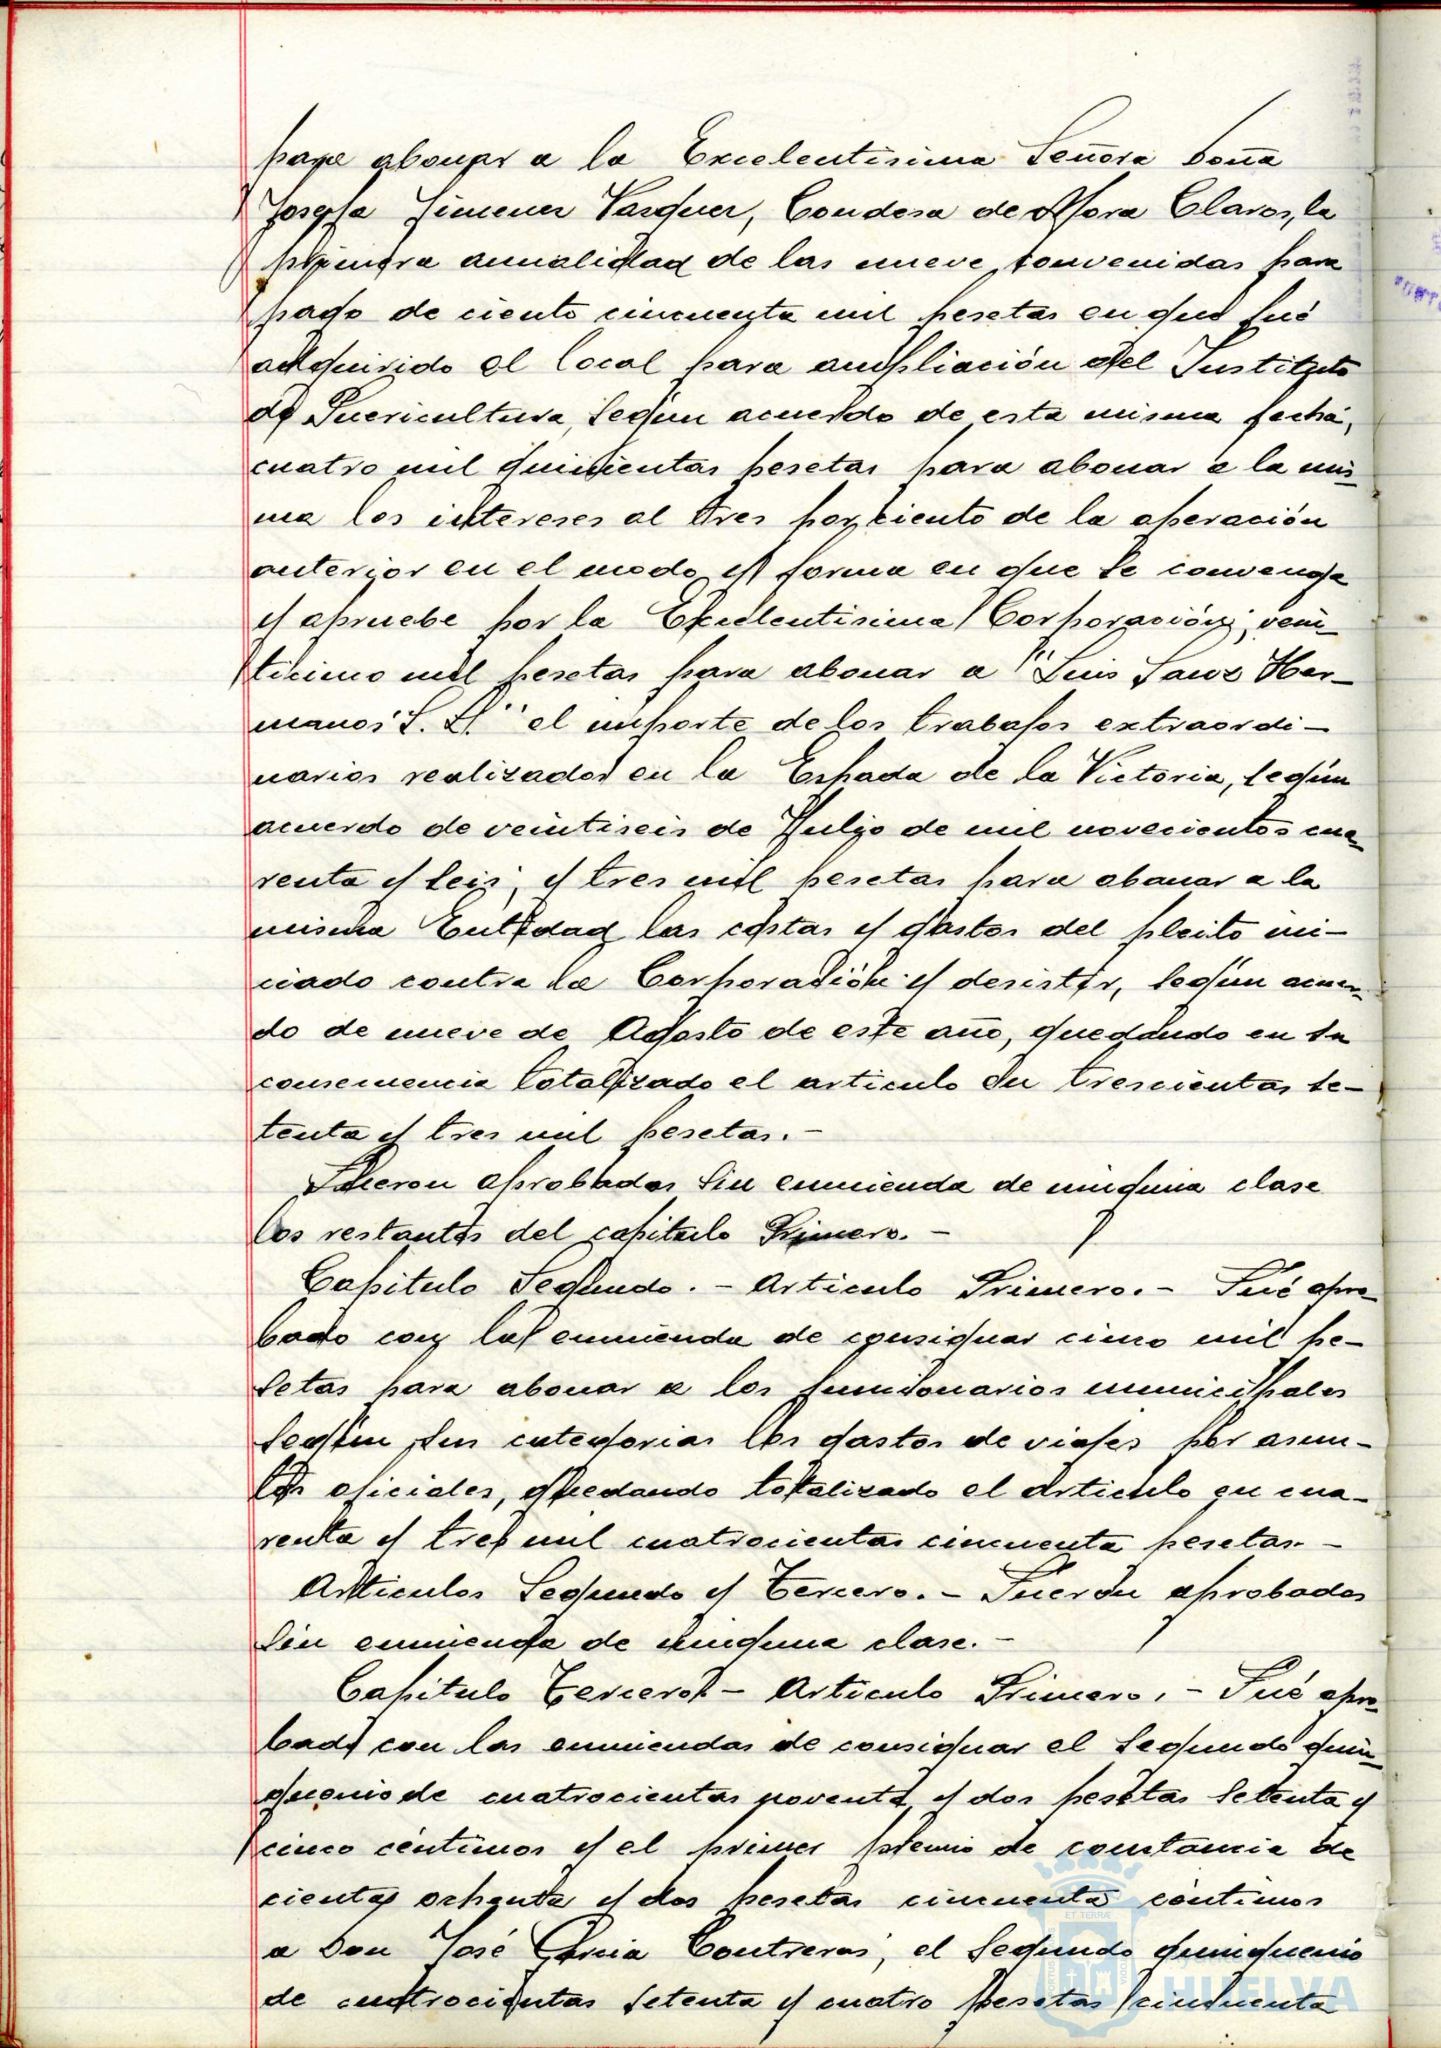 para abonar a la Excelentisima Señora Doña
Josefa Jimenez Vazquez, Condesa de Mora Claros, la
primera anualidad de las nueve convenidas para
pago de ciento cincuenta mil pesetas en que fué
adquirido el local para ampliación del Instituto
de Puericultura, según acuerdo de esta misma fecha;
cuatro mil quinientas pesetas para abonar a la mis-
ma los intereses al tres por ciento de la operación
anterior en el modo y forma en que se convenga
y apruebe por la Excelentisima Corporación; vein-
ticinco mil pesetas para abonar a "Luis Sanz Her-
manos S. L." el importe de los trabajos extraordi-
narios realizados en la Espada de la Victoria, según
acuerdo de veintiseis de Julio de mil novecientos cua-
renta y seis; y tres mil pesetas para abonar a la
misma Entidad las costas y gastos del pleito ini-
ciado contra la Corporación y desistir, según acuer-
do de nueve de Agosto de este año, quedando en su
consecuencia totalizado el articulo en trescientas se-
tenta y tres mil pesetas.-
Fueron aprobados sin enmienda de ninguna clase
los restantes del capitulo Primero.-
Capitulo Segundo.- Articulo Primero.- Fué apro-
bado con la enmienda de consignar cinco mil pe-
setas para abonar a los funcionarios municipales
según sus categorias los gastos de viajes por asun-
tos oficiales, quedando totalizado el articulo en cua-
renta y tres mil cuatrocientas cincuenta pesetas.-
Articulos Segundo y Tercero.- Fueron aprobados
sin enmienda de ninguna clase.-
Capitulo Tercero.- Articulo Primero.- Fué apro-
bado con las enmiendas de consignar el segundo quin-
quenio de cuatrocientas noventa y dos pesetas setenta y
cinco céntimos y el primer premio de constancia de
cientas ochenta y dos pesetas cincuenta céntimos
a Don José Garcia Contreras; el segundo quinquenio
de cuatrocientas setenta y cuatro pesetas cincuenta
HUELVA